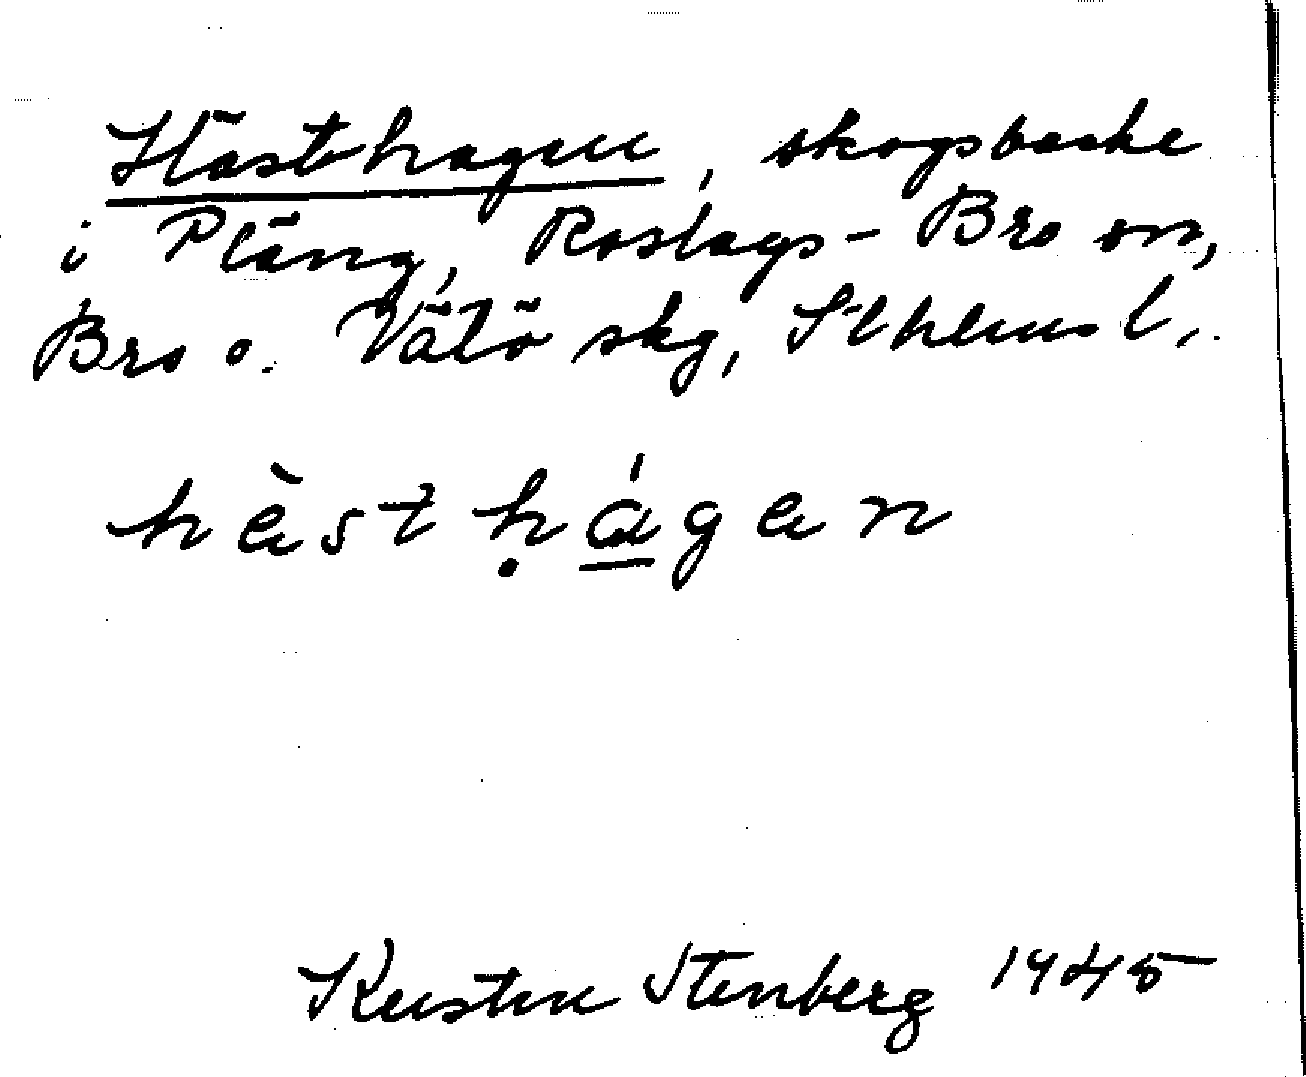 Hästhagen, skogsbacke
i Pläng, Roslags-Bro sn,
Bro o. Vätö skg, Sthlms l.
hèstḥágen
Kerstin Stenberg 1945